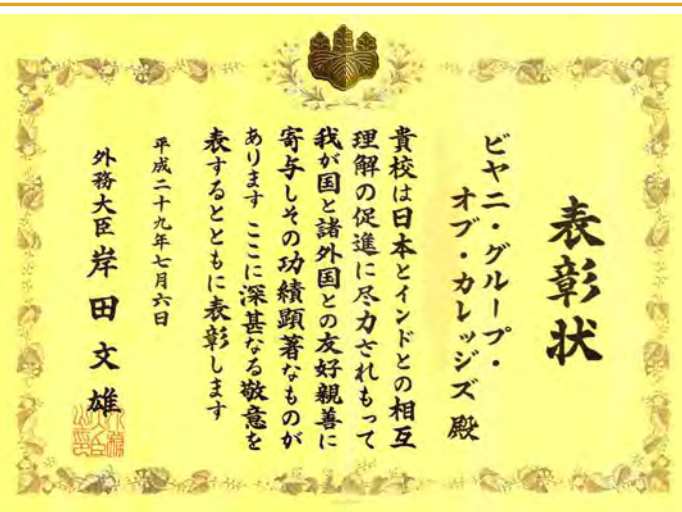 表彰状
ビヤニ・グループ・
オブ・カレッジズ 殿
貴校は日本とインドとの相互
理解の促進に尽力されもって
我が国と諸外国との友好親善に
寄与しその功績顕著なものが
あります ここに深甚なる敬意を
表するとともに表彰します
平成二十九年七月六日
外務大臣 岸田文雄